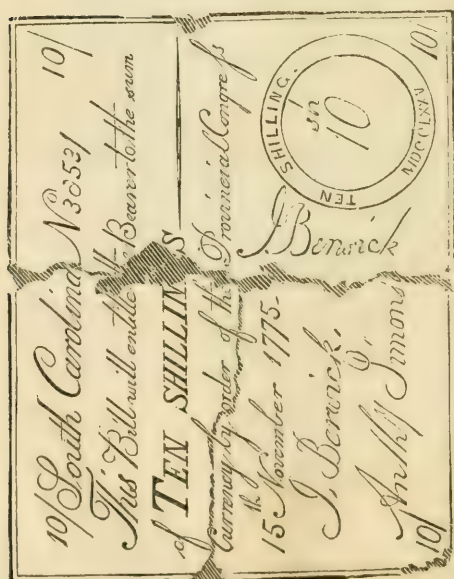 10/ South Carolina N 38531 10/
This Bill will entitle the Bearer to the sum
of TEN SHILLINGS
Currency by order of the Provincial Congress
the
15 November 1775-
J Berwick
J. Berwick.
Anthy Simons
TEN SHILLING.
sh
10
MDCCLXXV
10/ 10/